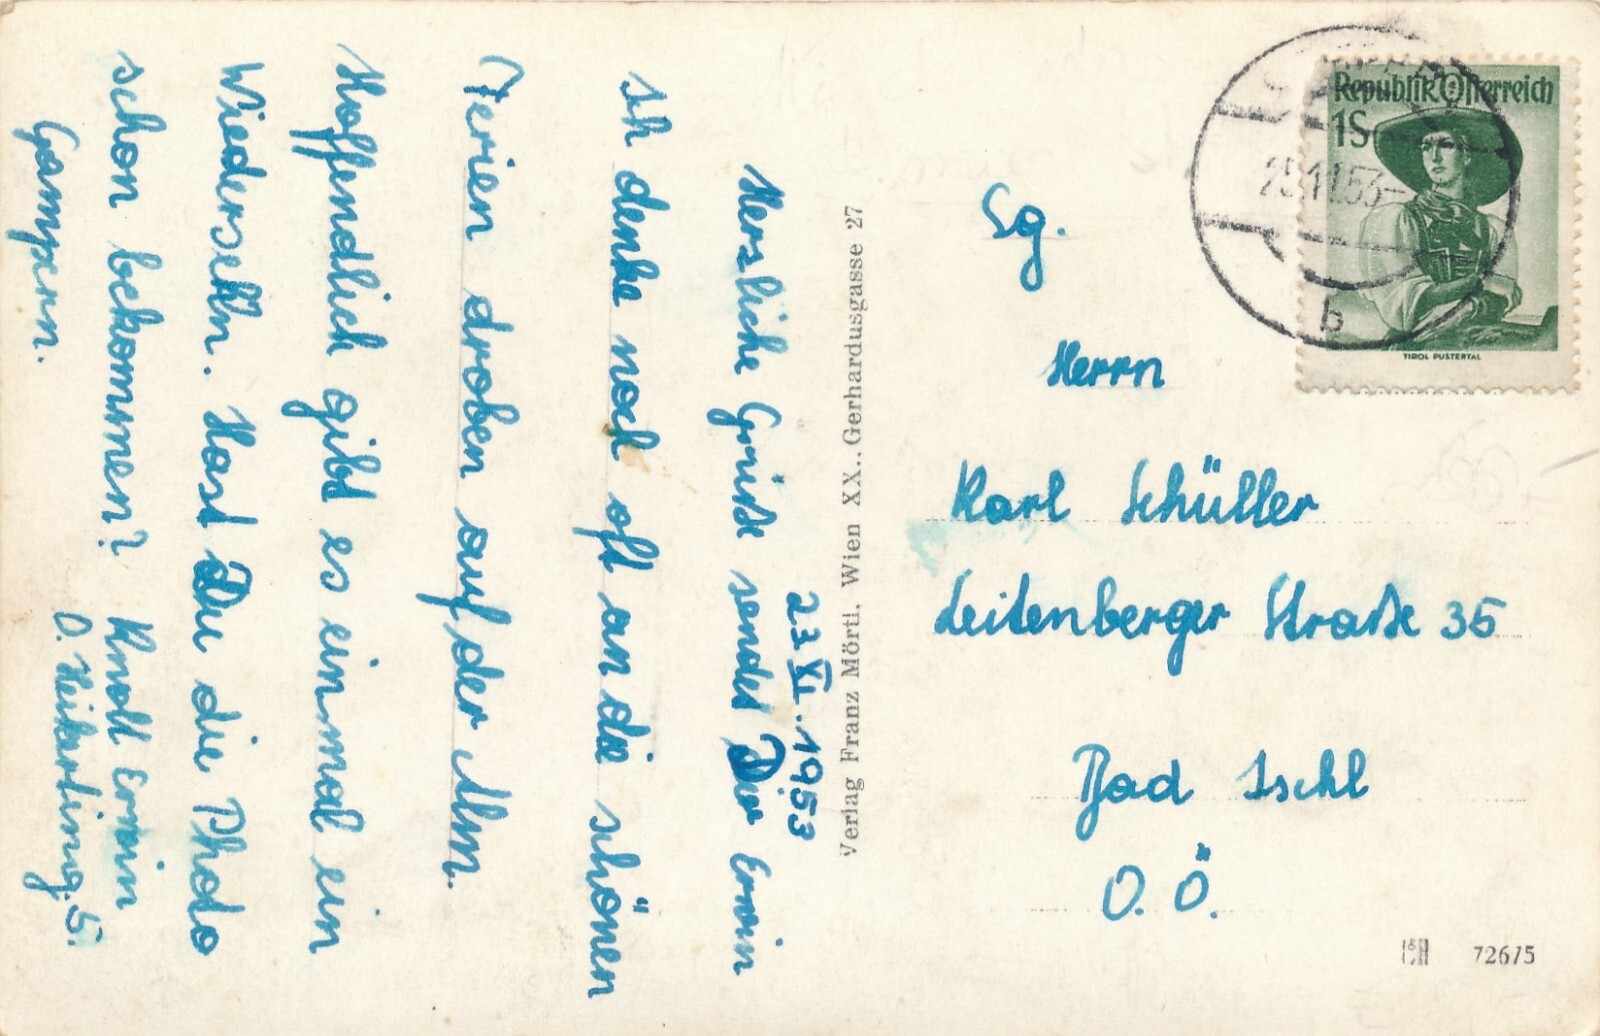 23 XI. 1953
Herzliche Grüße sendet Dir Erwin
Ich denke noch oft an die schönen
Ferien droben auf der Alm.
Hoffendlich gibt es einmal ein
Wiedersehn. Hast Du die Photo
schon bekommen? Knoll Erwin
O. Heikerting, 5.
Gampern.
Verlag Franz Mörtl, Wien XX., Gerhardusgasse 27
Sg.
Herrn
Karl Schüller
Leitenberger Straße 35
Bad Ischl
O. Ö.
Republik Österreich
1S
TIROL PUSTERTAL
25.11.53
b
726/5